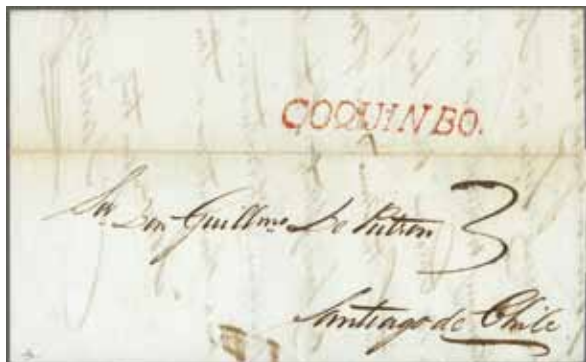 COQUINBO.
Sr. Don Guillmo. Le Putron 3
Santiago de Chile